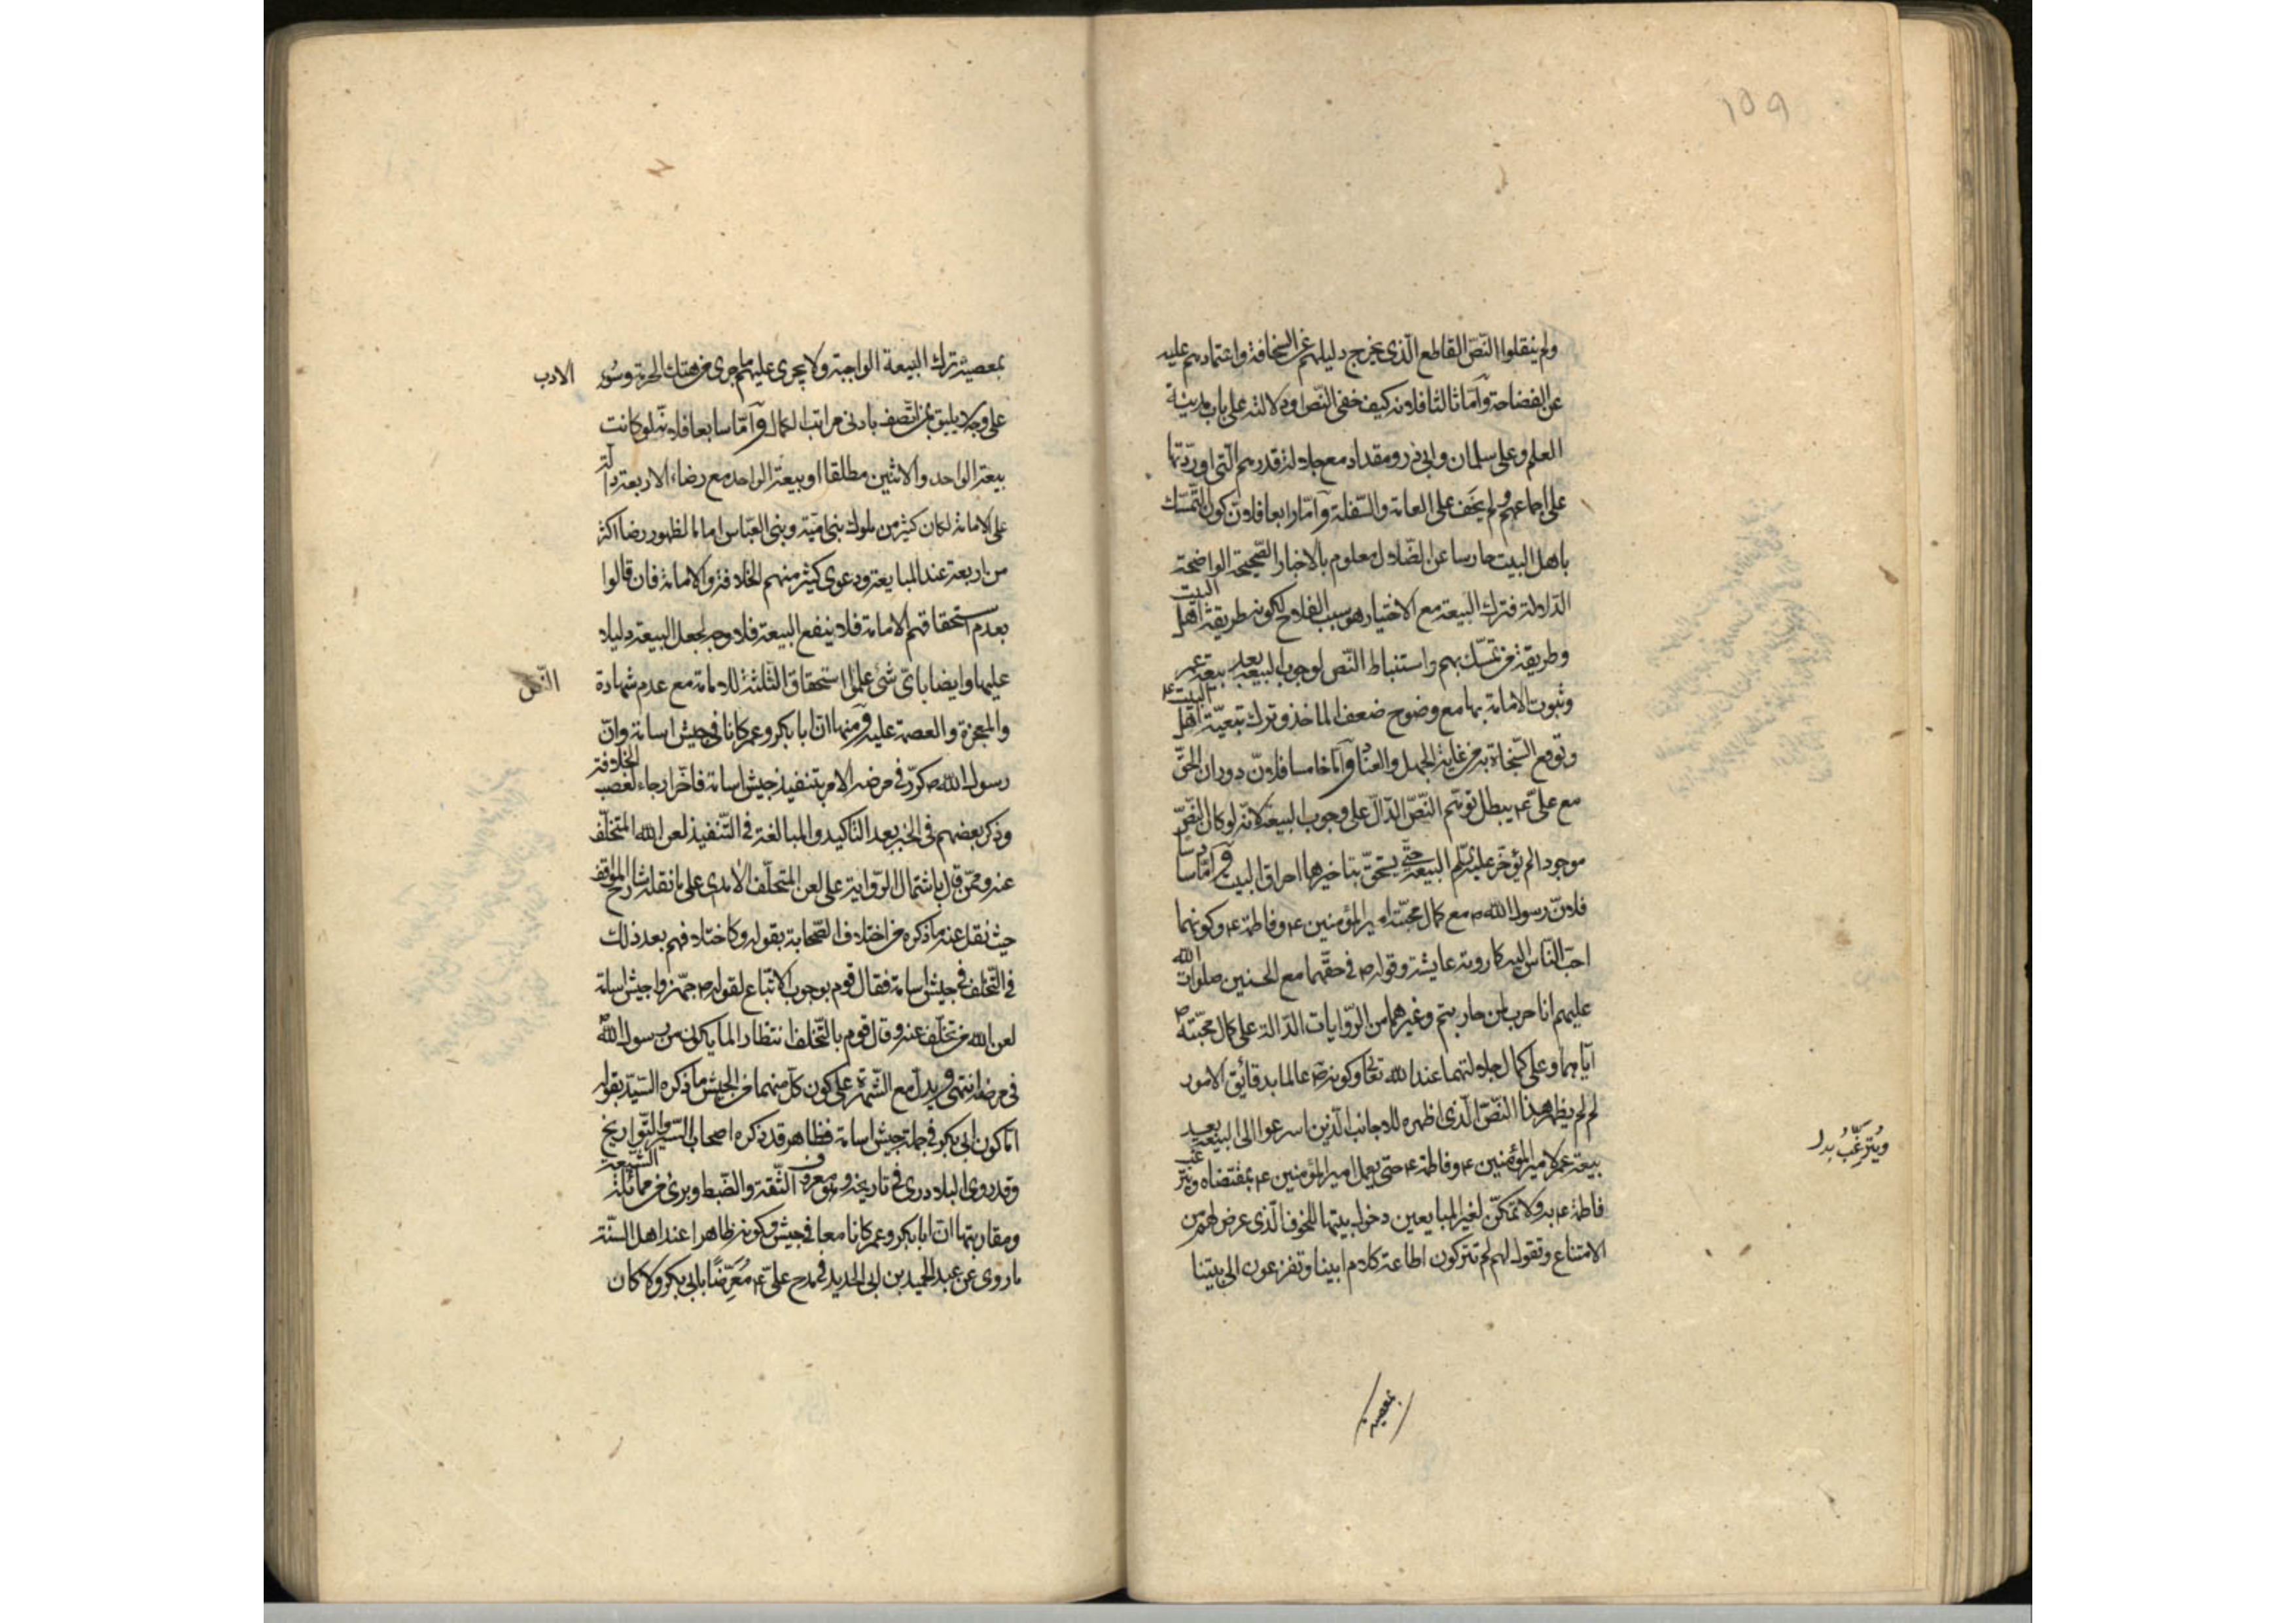 ١٥٩
ولم ينقلوا النّصّ القاطع الّذى يخرج دليلهم عن السخافة واعتمادهم عليه
عن الفضاحة وآمّا ثالثا فلانه كيف خفى النّص او دلالته على باب مدينة
العلم وعلى سلمان وابى ذر ومقداد مع جلالة قدرهم الّتى اوردتها
على اجماعهم ولم يخف على العامة والسّفلة وآمّا رابعا فلانّ كون التّمسّك
باهل البيت حارسا عن الضّلال معلوم بالاخبار الصّحيحة الواضحة
الدّلالة فترك البيعة مع الاختيار هو سبب الفلاح لكونه طريقة اهل البيت
وطريقة من تمسّك بهم واستنباط النّص لوجوب البيعة بعد بيعة عمر
وثبوت الامامة بها مع وضوح ضعف الماخذ وترك تبعيّة اهل البيت ع
وتوقع النّجاة به من غاية الجهل والعناد وآمّا خامسا فلانّ دوران الحقّ
مع علىّ ع يبطل توهّم النّصّ الدّالّ على وجوب البيعة لانّه لو كان النّصّ
موجودا لم يؤخّر عليه السّلم البيعة حتّى يستحقّ بتاخيرها احراق البيت وآمّا سادسا
فلانّ رسول الله ص مع كمال محبّته امير المؤمنين ع وفاطمة ع وكونهما
احبّ النّاس اليه كا روته عايشة وقوله ص فى حقّهما مع الحسنين صلوات الله
عليهم انا حرب لمن حاربتم وغيرهما من الرّوايات الدّالة على كمال محبّته ص
آياهما وعلى كمال جلالتهما عند الله تعالى وكونه ص عالما بدقائق الامور
لم لم يظهر هذا النّصّ الّذى اظهره للاجانب الّذين اسرعوا الى البيعة بعد
بيعة عمر لامير المؤمنين ع وفاطمة ع حتى يعمل امير المؤمنين ع بمقتضاه ويترغّب
ويُترغّبُ بدل
فاطمة ع به ولا تمكّن لغير المبايعين دخول بيتها للخوف الّذى عرض لهم من
الامتناع وتقول لهم لم تتركون اطاعة كلام ابينا وتفزعون الى بيتنا
بمعصية
بمعصية ترك البيعة الواجبة ولا يجرى عليهم ما جرى من هتك الحرمة وسوء الادب
على وجه لا يليق بمن اتّصف بادنى مراتب الكمال وآمّا سابعا فلانّه لو كانت
بيعة الواحد والاثنين مطلقا او بيعة الواحد مع رضاء الاربعة دالّة
على الامامة لكان كثير من ملوك بنى اميّة وبنى العبّاس اماما لظهور رضا اكثر
من اربعة عند المبايعة ودعوى كثير منهم الخلافة والامامة فان قالوا
بعدم استحقاقهم الامامة فلا ينفع البيعة فلا وجه لجعل البيعة دليلا
عليها وايضا باىّ شئ علموا استحقاق الثّلثة للامامة مع عدم شهادة النّص
والمعجزة والعصمة عليه ومنها انّ ابا بكر وعمر كانا فى جيش اسامة وانّ
رسول الله ص كرّر فى مرضه الامر بتنفيذ جيش اسامة فاخّرا رجاء لغصب الخلافة
وذكر بعضهم فى الخبر بعد التّاكيد والمبالغة فى التّنفيذ لعن الله المتخلّف
عنه وممّن قال باشتمال الرّواية على لعن المتخلّف الآمدى على ما نقله شارح المواقف
حيث نقل عنه ما ذكره من اختلاف الصّحابة بقوله وكاختلافهم بعد ذلك
فى التّخلف فى جيش اسامة فقال قوم بوجوب الاتّباع لقوله ص جهّزوا جيش اسامة
لعن الله من تخلّف عنه وقال قوم بالتّخلف انتظارا لما يكون من رسول الله ص
فى مرضه انتهى ويدلّ مع الشّهرة على كون كلّ منهما من الجيش ما ذكره السّيّد بقوله
امّا كون ابى بكر فى جملة جيش اسامة فظاهر قد ذكره اصحاب السّير والتّواريخ
وقد روى البلاذرى فى تاريخه وهو معروف الثّقة والضّبط وبرئ من مماثلة الشّيعة
ومقاربتها انّ ابا بكر وعمر كانا معا فى جيش وكونه ظاهرا عند اهل السّنة
ما روى عن عبد الحميد بن ابى الحديد فى مدح علىّ ع مُعَرِّضًا بابى بكر ولا كان